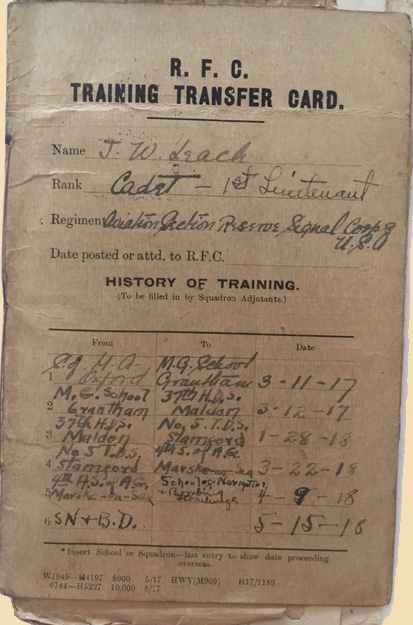 R. F. C.
TRAINING TRANSFER CARD.
Name J. W. Leach
Rank Cadet - 1st Lieutenant
Regiment Aviation Section Reserve, Signal Corps
U.S.
Date posted or attd, to R.F.C.
HISTORY OF TRAINING.
(To be filled in by Squadron Adjutants.)
From To Date
S. of M.A. M.G. School
1 Oxford Grantham 3-11-17
M.G. School 37th H.D.S.
2 Grantham Maldon 3-12-17
37th H.D.S. No. 5. T.D.S.
3 Maldon Stamford 1-28-18
No 5 T.D.S. 4th S. of A.G.
4 Stamford Marske-on-Sea 3-22-18
4th A.S. of A.G. School of Navigation
5 Marske-on-Sea + Bombing 4-9-18
Stonehenge
6 SN + B.D. 5-15-18
* Insert School or Squadron—last entry to show date proceeding
overseas.
W1849—M4197 8000 5/17 HWV(M909) H17/1189
6744—H5227 10,000 8/17